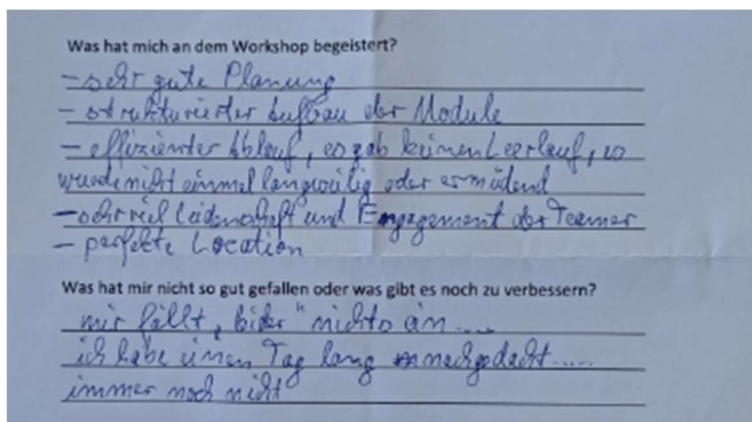 Was hat mich an dem Workshop begeistert?
- sehr gute Planung
- strukturierter Aufbau der Module
- effizienter Ablauf, es gab keinen Leerlauf, es
wurde nicht einmal langweilig oder ermüdend
- sehr viel Leidenschaft und Engagement der Teamer
- perfekte Location
Was hat mir nicht so gut gefallen oder was gibt es noch zu verbessern?
mir fällt „leider“ nichts ein....
ich habe einen Tag lang nachgedacht.....
immer noch nicht